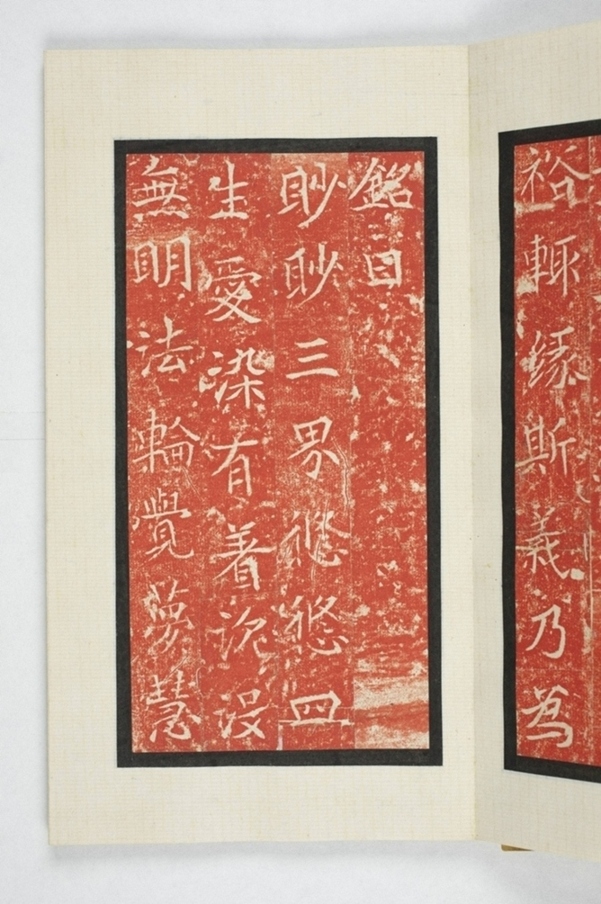 裕輙缘斯義乃為
銘曰
眇眇三界悠悠四
生愛染有着沉沒
無明法輪覺夢慧